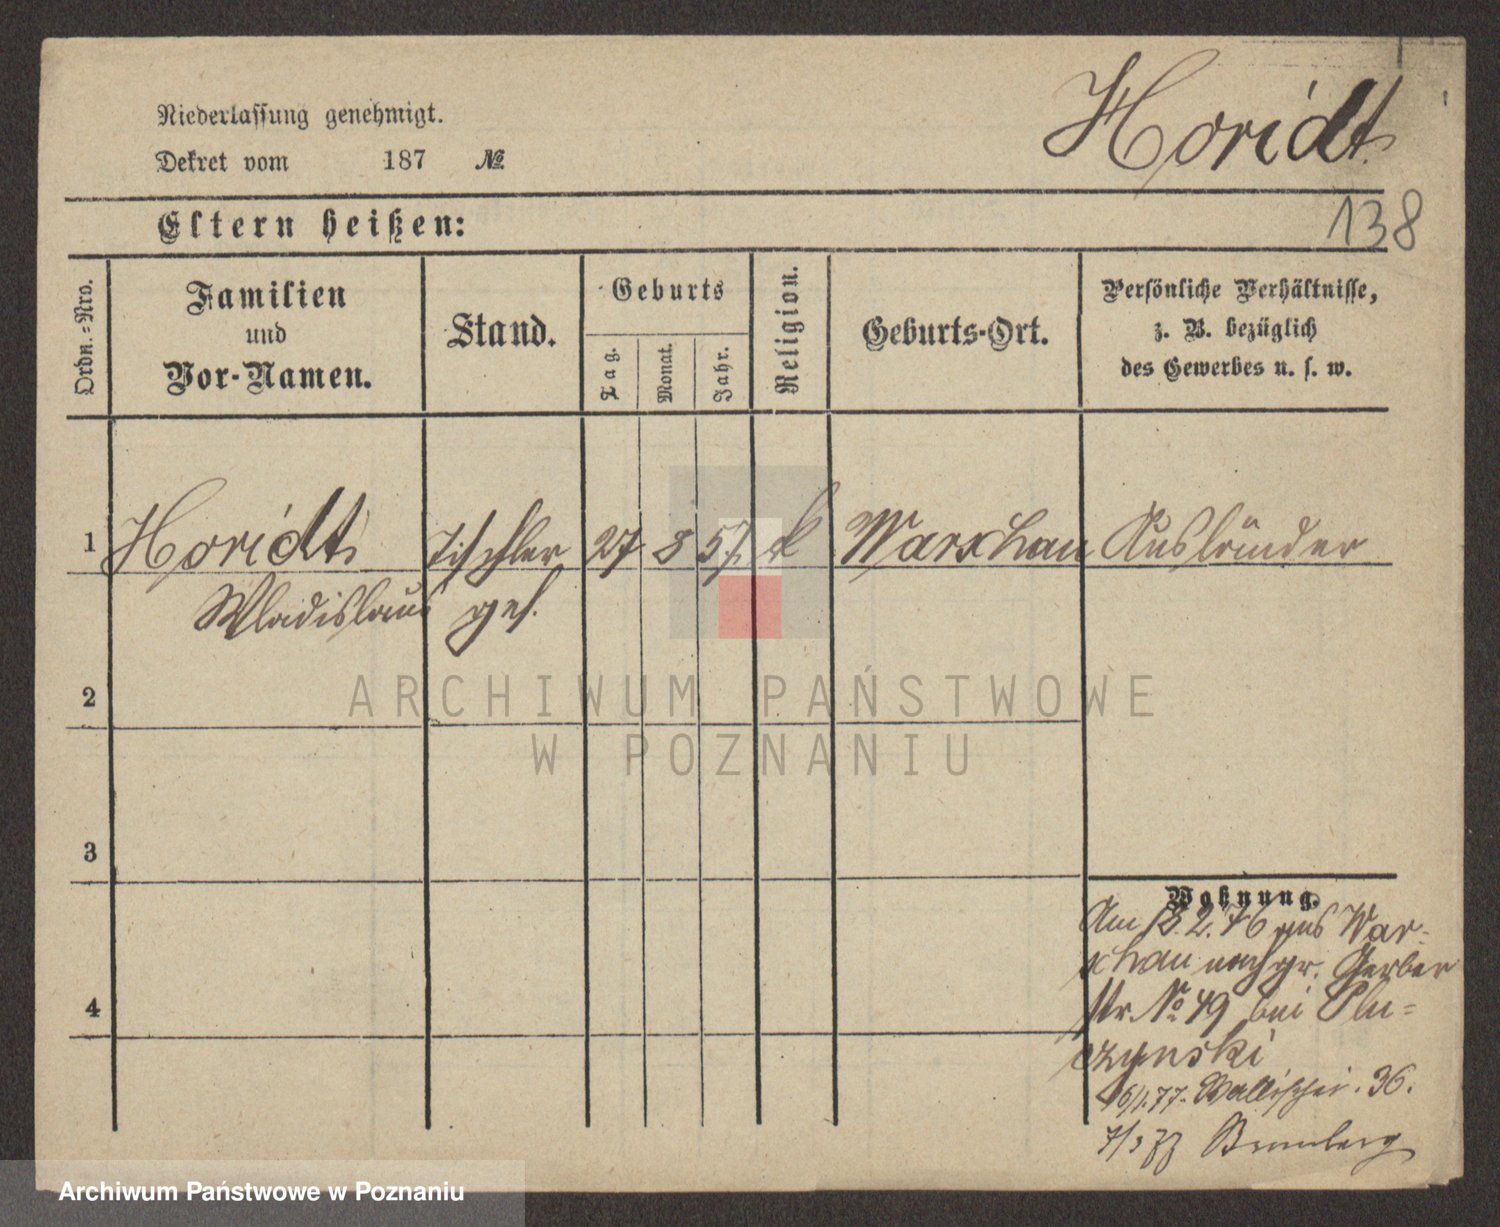 Horidt
Niederlassung genehmigt.
Dekret vom 187 №
138
Eltern heißen:
Ordn.=Nro.
Familien
und
Vor-Namen.
Stand.
Geburts
Tag.
Monat.
Jahr.
Religion.
Geburts-Ort.
Persönliche Verhältnisse,
z. B. bezüglich
des Gewerbes u. s. w.
1 Horidt Tischler 27 8 57 k Warschau Ausländer
Wladislaus ges.
2
3
4
Wohnung.
Am 18.2.76 aus War=
schau nach gr. Gerber
str № 49 bei Plu=
czynski
16/1.77. Wallischei. 36.
7/3 77 Bromberg
ARCHIWUM PAŃSTWOWE
W POZNANIU
Archiwum Państwowe w Poznaniu